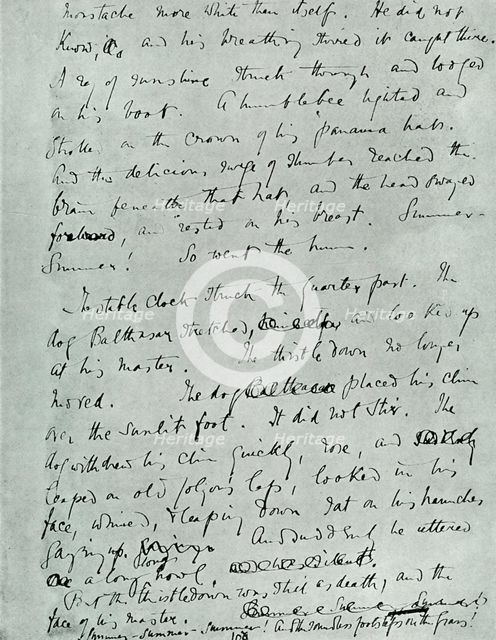 moustache more white than itself. He did not
know, and his breathing stirred it caught there.
A ray of sunshine struck through and lodged
on his boot. A humblebee lighted and
strolled on the crown of his panama hat.
And the delicious surge of slumber reached the
brain beneath that hat, and the head swayed
forward, and rested on his breast. Summer-
Summer! So went the hum.
The stable clock struck the quarter past. The
dog Balthasar stretched, and looked up
at his master. The thistledown no longer
moved. The dog placed his chin
over the sunlit foot. It did not stir. The
dog withdrew his chin quickly, rose, and
leaped on old Jolyon's lap, looked in his
face, whined, & leaping down sat on his haunches
gazing up. And suddenly he uttered
a long, long howl.
But the thistledown was still as death, and the
face of his master.
Summer-summer-summer! And the soundless footsteps on the grass!
Heritage
Heritage
Heritage
Heritage
Heritage
Heritage
©